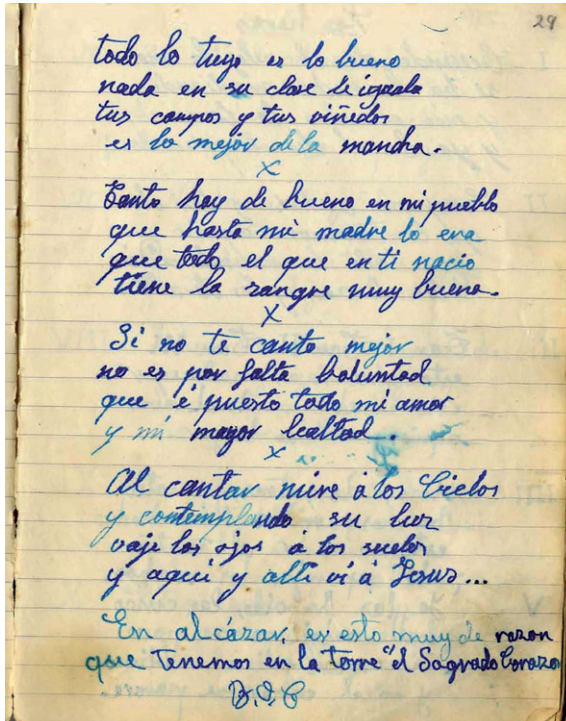 29
todo lo tuyo es lo bueno
nada en su clase le iguala
tus campos y tus viñedos
es lo mejor de la mancha.
X
Tanto hay de bueno en mi pueblo
que hasta mi madre lo era
que todo el que en ti nacio
tiene la sangre muy buena.
X
Si no te canto mejor
no es por falta boluntad
que é puesto todo mi amor
y mi mayor lealtad.
X
Al cantar mire à los Cielos
y contemplando su luz
vaje los ojos à los suelos
y aqui y alli vi à Jesus...
En alcázar, es esto muy de razon
que Tenemos en la torre "el Sagrado Corazon